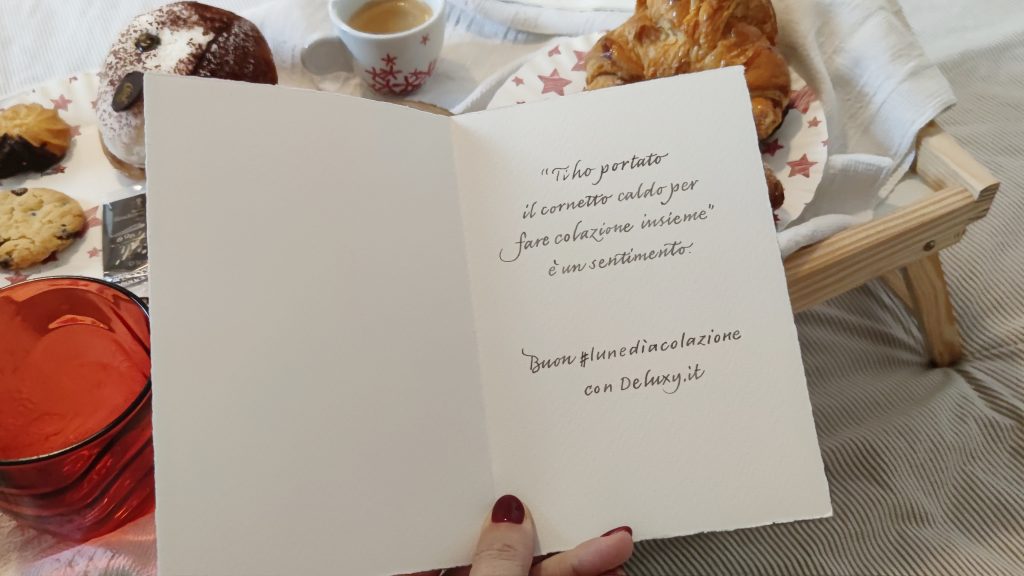 “Ti ho portato
il cornetto caldo per
fare colazione insieme”
è un sentimento.
Buon #lunediacolazione
con Deluxy.it